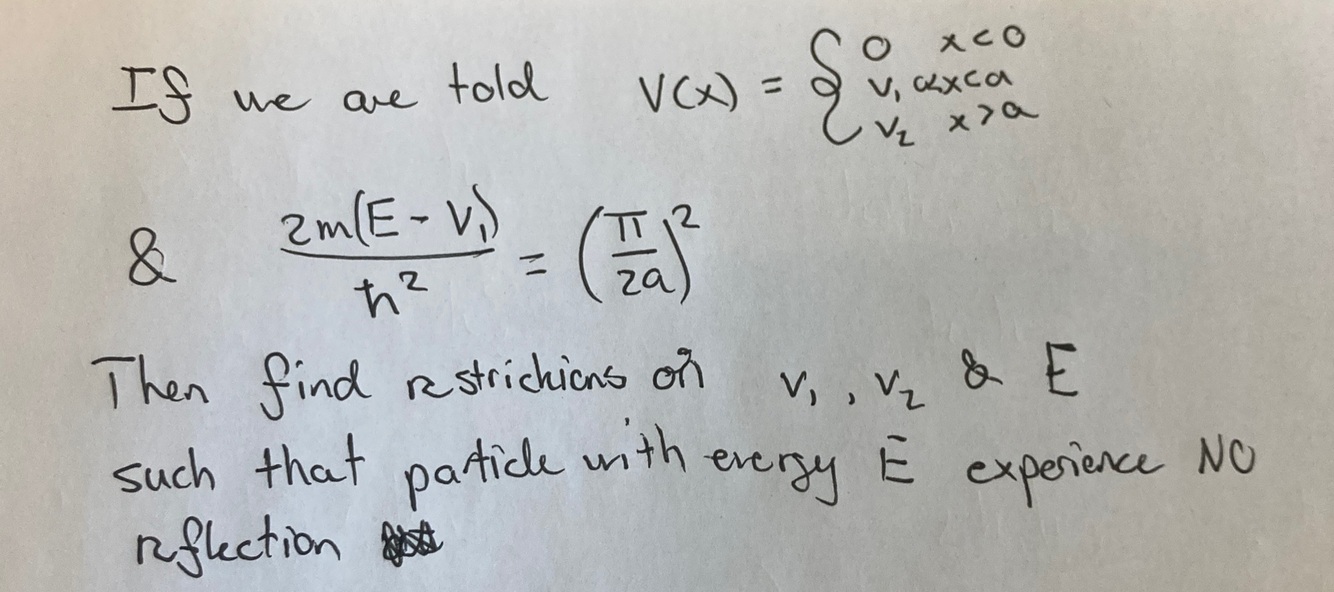 If we are told V(x) = { 0 x<0
v₁ 0<x<a
v₂ x>a
& 2m(E - V₁)/ħ² = (π/2a)²
Then find restrictions on v₁, v₂ & E
such that particle with energy E experience NO
reflection